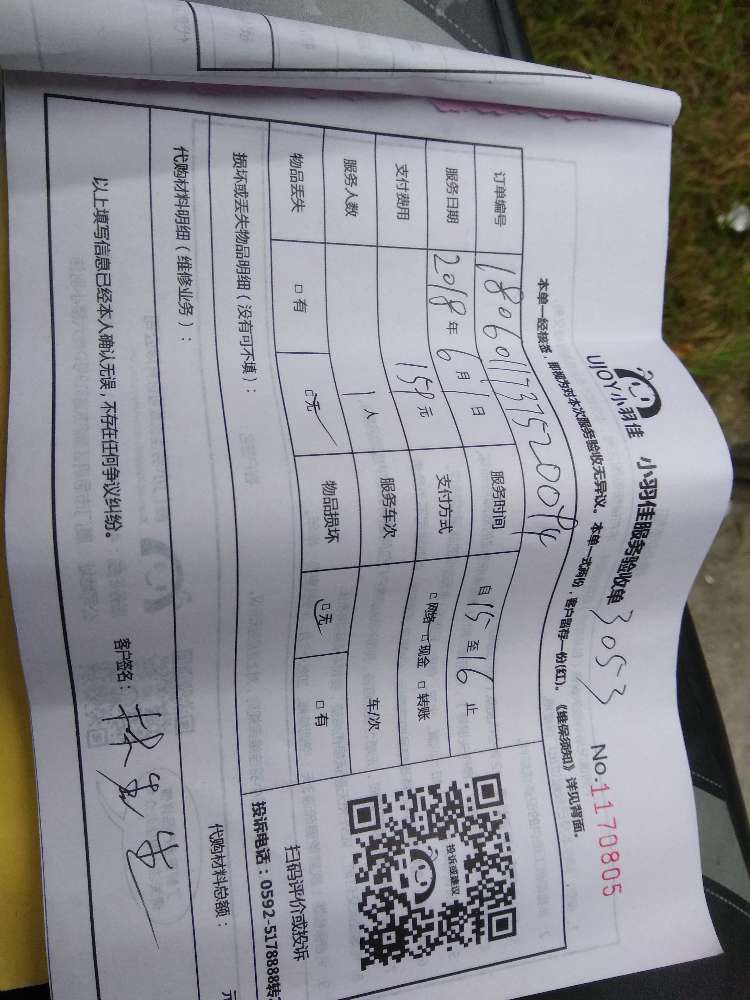 UJOY小羽佳 小羽佳服务验收单 3053 No.1170805
本单一经核悉，即视为对本次服务验收无异议。本单一式两份，客户留存一份(红)。《维保须知》详见背面。
订单编号
服务时间 自15至16止
服务日期 2018年6月1日
支付方式 □网络 □现金 □转账
支付费用 158元
服务车次 车/次
服务人数 1人
物品损坏 □无 □有
物品丢失 □有 □无
损坏或丢失物品明细（没有可不填）：
投诉或建议
扫码评价或投诉
投诉电话：0592-5178888转
代购材料明细（维修业务）：
代购材料总额： 元
以上填写信息已经本人确认无误，不存在任何争议纠纷。
客户签名：